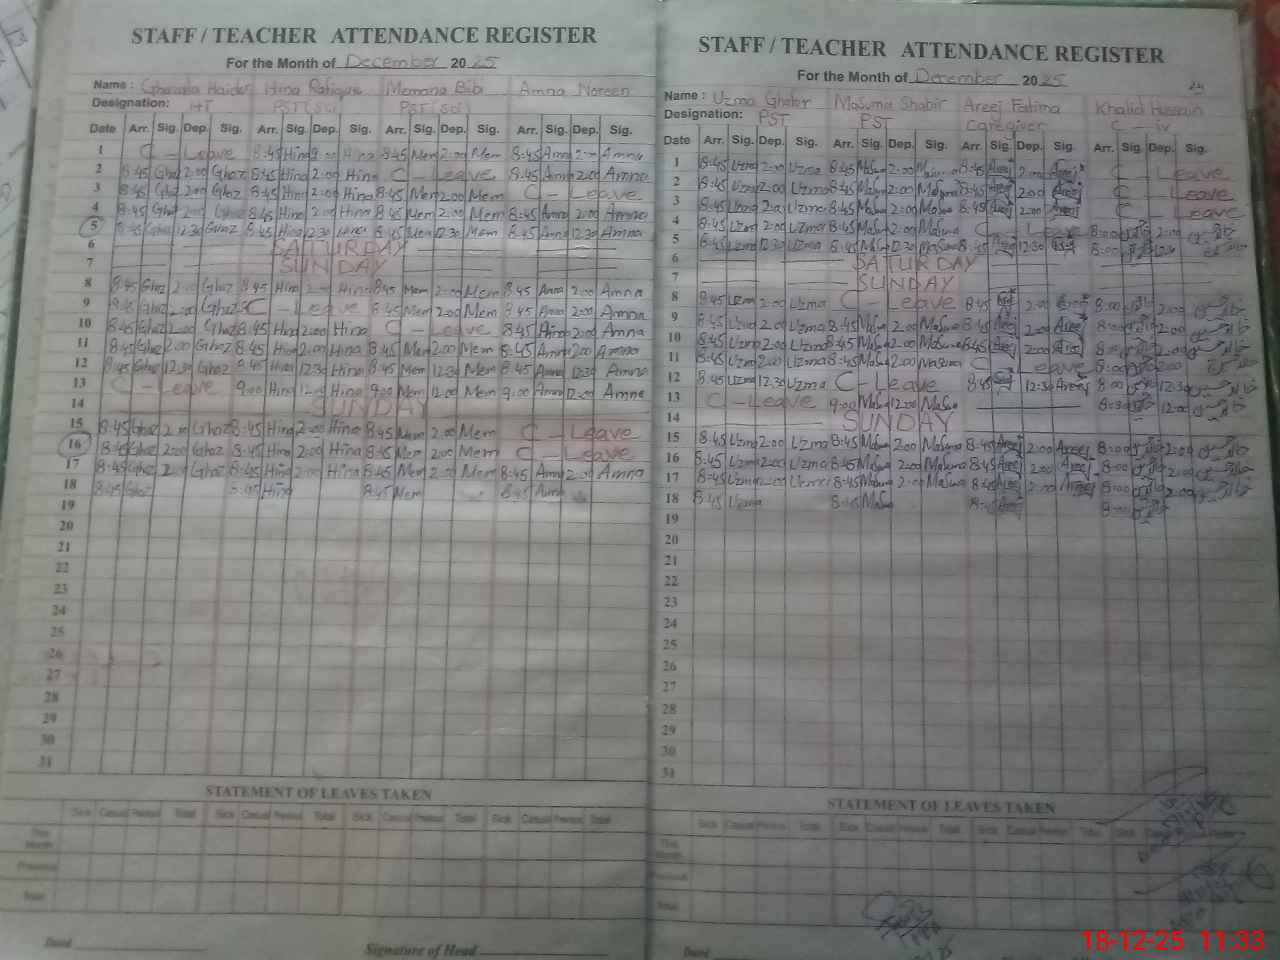 STAFF / TEACHER ATTENDANCE REGISTER
For the Month of December 2025
Name : Ghazala Haider Hina Rafique Memona Bibi Amna Noreen
Designation: HT PST(Sci) PST(Sci)
Date Arr. Sig. Dep. Sig. Arr. Sig. Dep. Sig. Arr. Sig. Dep. Sig. Arr. Sig. Dep. Sig.
1 C - Leave 8:45 Hina 2:00 Hina 8:45 Mem 2:00 Mem 8:45 Amna 2:00 Amna
2 8:45 Ghaz 2:00 Ghaz 8:45 Hina 2:00 Hina C - Leave 8:45 Amna 2:00 Amna
3 8:45 Ghaz 2:00 Ghaz 8:45 Hina 2:00 Hina 8:45 Mem 2:00 Mem C - Leave
4 8:45 Ghaz 2:00 Ghaz 8:45 Hina 2:00 Hina 8:45 Mem 2:00 Mem 8:45 Amna 2:00 Amna
5 8:45 Ghaz 12:30 Ghaz 8:45 Hina 12:30 Hina 8:45 Mem 12:30 Mem 8:45 Amna 12:30 Amna
6 SATURDAY
7 SUNDAY
8 8:45 Ghaz 2:00 Ghaz 8:45 Hina 2:00 Hina 8:45 Mem 2:00 Mem 8:45 Amna 2:00 Amna
9 8:45 Ghaz 2:00 Ghaz C - Leave 8:45 Mem 2:00 Mem 8:45 Amna 2:00 Amna
10 8:45 Ghaz 2:00 Ghaz 8:45 Hina 2:00 Hina C - Leave 8:45 Amna 2:00 Amna
11 8:45 Ghaz 2:00 Ghaz 8:45 Hina 2:00 Hina 8:45 Mem 2:00 Mem 8:45 Amna 2:00 Amna
12 8:45 Ghaz 12:30 Ghaz 8:45 Hina 12:30 Hina 8:45 Mem 12:30 Mem 8:45 Amna 12:30 Amna
13 C - Leave 9:00 Hina 12:00 Hina 9:00 Mem 12:00 Mem 9:00 Amna 12:00 Amna
14 SUNDAY
15 8:45 Ghaz 2:00 Ghaz 8:45 Hina 2:00 Hina 8:45 Mem 2:00 Mem C - Leave
16 8:45 Ghaz 2:00 Ghaz 8:45 Hina 2:00 Hina 8:45 Mem 2:00 Mem C - Leave
17 8:45 Ghaz 2:00 Ghaz 8:45 Hina 2:00 Hina 8:45 Mem 2:00 Mem 8:45 Amna 2:00 Amna
18 8:45 Ghaz 8:45 Hina 8:45 Mem 8:45 Amna
19
20
21
22
23
24
25
26
27
28
29
30
31
STATEMENT OF LEAVES TAKEN
Sick Casual Previous Total Sick Casual Previous Total Sick Casual Previous Total Sick Casual Previous Total
This Month
Previous
Total
Dated Signature of Head
STAFF / TEACHER ATTENDANCE REGISTER
For the Month of December 2025
Name : Uzma Ghafar Masuma Shabir Areej Fatima Khalid Hussain
Designation: PST PST Caregiver C - iv
Date Arr. Sig. Dep. Sig. Arr. Sig. Dep. Sig. Arr. Sig. Dep. Sig. Arr. Sig. Dep. Sig.
1 8:45 Uzma 2:00 Uzma 8:45 Masu 2:00 Masuma 8:45 Areej 2:00 Areej C - Leave
2 8:45 Uzma 2:00 Uzma 8:45 Masu 2:00 Masuma 8:45 Areej 2:00 Areej C - Leave
3 8:45 Uzma 2:00 Uzma 8:45 Masu 2:00 Masuma 8:45 Areej 2:00 Areej C - Leave
4 8:45 Uzma 2:00 Uzma 8:45 Masu 2:00 Masuma C - Leave 8:00 2:00
5 8:45 Uzma 12:30 Uzma 8:45 Masu 12:30 Masuma 8:45 12:30 8:00
6 SATURDAY
7 SUNDAY
8 8:45 Uzma 2:00 Uzma C - Leave 8:45 Areej 2:00 Areej 8:00 2:00
9 8:45 Uzma 2:00 Uzma 8:45 Masu 2:00 Masuma 8:45 Areej 2:00 Areej 8:00 2:00
10 8:45 Uzma 2:00 Uzma 8:45 Masu 2:00 Masuma 8:45 Areej 2:00 Areej 8:00 2:00
11 8:45 Uzma 2:00 Uzma 8:45 Masu 2:00 Masuma C - Leave 8:00 2:00
12 8:45 Uzma 12:30 Uzma C - Leave 8:45 12:30 Areej 8:00 12:30
13 C - Leave 9:00 Masu 12:00 Masum 8:30 12:00
14 SUNDAY
15 8:45 Uzma 2:00 Uzma 8:45 Masu 2:00 Masuma 8:45 Areej 2:00 Areej 8:00 2:00
16 8:45 Uzma 2:00 Uzma 8:45 Masu 2:00 Masuma 8:45 Areej 2:00 Areej 8:00 2:00
17 8:45 Uzma 2:00 Uzma 8:45 Masu 2:00 Masuma 8:45 Areej 2:00 Areej 8:00 2:00
18 8:45 Uzma 8:45 Masu 8:45 Areej 8:00
19
20
21
22
23
24
25
26
27
28
29
30
31
STATEMENT OF LEAVES TAKEN
Sick Casual Previous Total Sick Casual Previous Total Sick Casual Previous Total Sick
This Month
Total
Dated
18-12-25 11:33